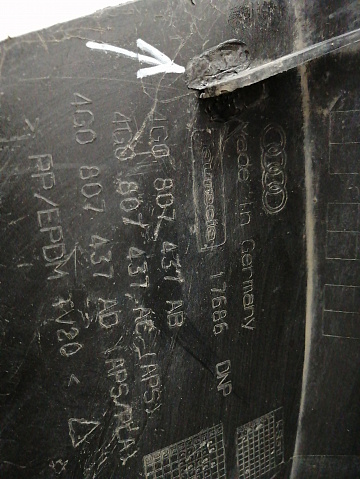 Made in Germany
17686 DNP
4G0 807 437 AB
4G0 807 437 AC (APS)
4G0 807 437 AD (APS/PLA)
PP/EPDM TV20 <